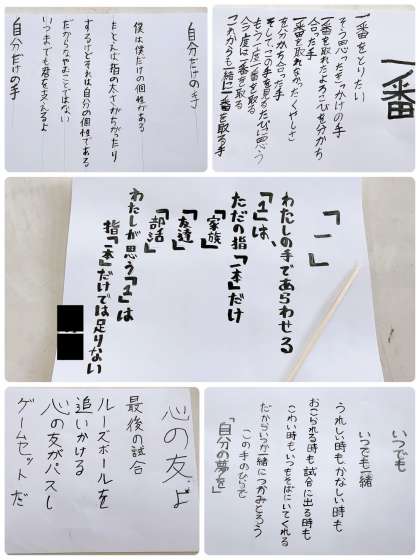 自分だけの手
僕は僕だけの個性がある
たとえば指の太さがちがったり
するけどそれは自分の個性である
だからなやむことではない
いつまでも君を支えるよ
自分だけの手
一番
一番をとりたい
そう思ったきっかけの手
一番を取れたよろこびを分かち
合った手
一番を取れなかったくやしさ
を分かち合った手
そしてこの手を見るたびに思う
もう一度一番を取る
今度は一番を取る
これからも一緒に一番を取る手
「一」
わたしの手であらわせる
「1」は、
ただの指「一本」だけ
「家族」
「友達」
「部活」
わたしが思う「1」は
指「一本」だけでは足りない
心の友よ
最後の試合
ルーズボールを
追いかける
心の友がパスし
ゲームセットだ
いつでも
いつでも一緒
うれしい時もかなしい時も
おこられる時も試合に出る時も
こわい時もいつもそばにいてくれる
だからいつか一緒につかみとろう
この手のひらで
「自分の夢を」